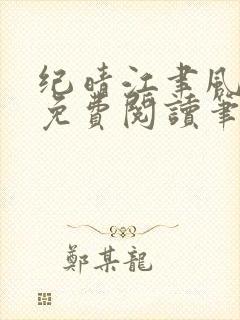 纪晴江聿风
免費閱讀筆
鄭某龍